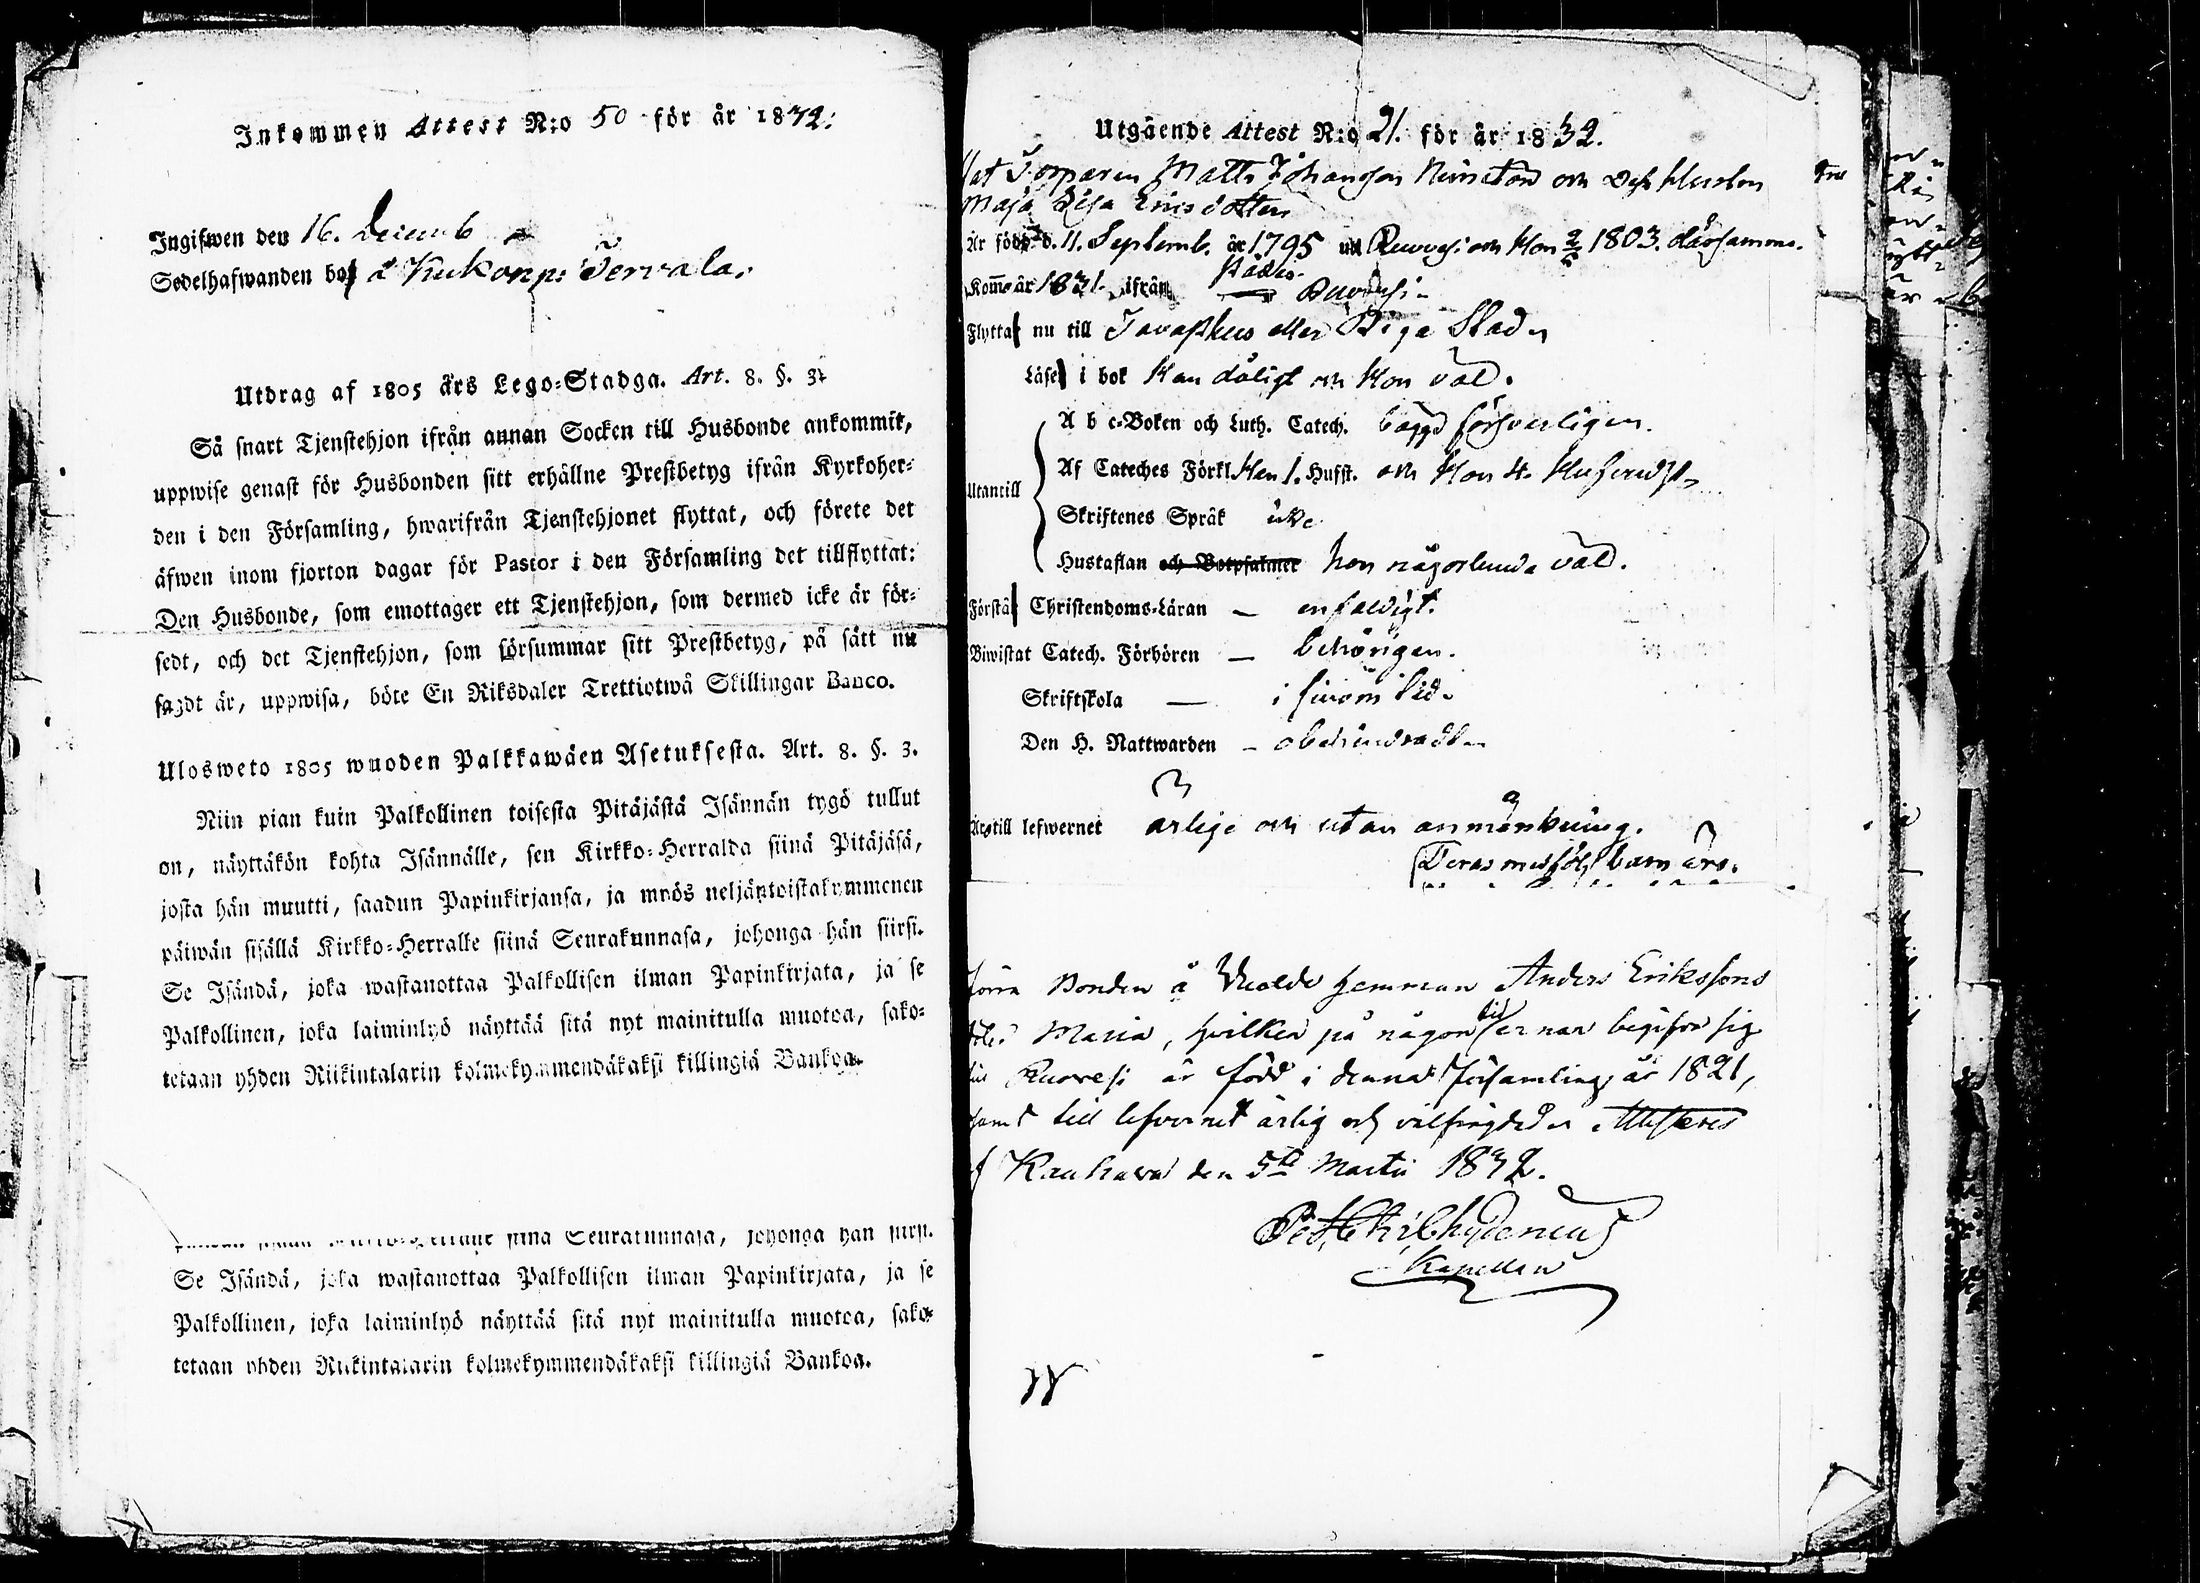 Inkommen Attest N:o 50 för år 1832:
Ingifwen den 16. Decemb
Sedelhafwanden bor å Kukonp: Tervala.
Utdrag af 1805 års Lego-Stadga. Art. 8. §. 3.
Så snart Tjenstehjon ifrån annan Socken till Husbonde ankommit,
uppwise genast för Husbonden sitt erhållne Prestbetyg ifrån Kyrkoher-
den i den Församling, hwarifrån Tjenstehjonet flyttat, och förete det
äfwen inom fjorton dagar för Pastor i den Församling det tillflyttat:
Den Husbonde, som emottager ett Tjenstehjon, som dermed icke är för-
sedt, och det Tjenstehjon, som försummar sitt Prestbetyg, på sätt nu
sagdt är, uppwisa, böte En Riksdaler Trettiotwå Skillingar Banco.
Ulosweto 1805 wuoden Palkkawäen Asetuksesta. Art. 8. §. 3.
Niin pian kuin Palkollinen toisesta Pitäjästä Isännän tygö tullut
on, näyttäkön kohta Isännälle, sen Kirkko-Herralda siinä Pitäjäsä,
josta hän muutti, saadun Papinkirjansa, ja myös neljäntoistakymmenen
päiwän sisällä Kirkko-Herralle siinä Seurakunnasa, johonga hän siirsi.
Se Isändä, joka wastanottaa Palkollisen ilman Papinkirjata, ja se
Palkollinen, joka laiminlyö näyttää sitä nyt mainitulla muotoa, sako-
tetaan yhden Riikintalarin kolmekymmendäkaksi killingiä Bankoa.
siinä Seurakunnasa, johonga hän siirsi.
Se Isändä, joka wastanottaa Palkollisen ilman Papinkirjata, ja se
Palkollinen, joka laiminlyö näyttää sitä nyt mainitulla muotoa, sako-
tetaan yhden Riikintalarin kolmekymmendäkaksi killingiä Bankoa.
Utgående Attest N:o 21. för år 1832.
Att Torparen Matts Johansson och dess Hustru
Maja Lisa Ericsdotter
Är född d. 11. Septemb. år 1795 uti Ruovesi och Hon 1803. därsammas.
Komne år 1831. ifrån Ruovesi
Flytta nu till Tavasthus eller Riga Stad
Läser i bok Han dåligt och Hon väl.
Utantill
A b c-Boken och Luth. Catech. bägge försvarligen.
Af Cateches Förkl. Han 1. Hufst. och Hon 4. Hufvudst.
Skriftenes Språk icke
Hustaflan och Botpsalmer hon någorlunda väl.
Förstå Christendoms-Läran — enfaldigt.
Biwistat Catech. Förhören — behörigen.
Skriftskola — i sinom tid.
Den H. Nattwarden — obehindrade
Äro till lefwernet ärlige och utan anmärkning.
Deras medfölj. barn äro.
Bonden å hemman Anders Erikssons
Maria, hvilken på någon tid ernar begifva sig
till Ruovesi är född i denna Församling år 1821,
samt till lefvernet ärlig och välfrägdad Attesteras
af Kauhava den 5te Martii 1832.
Chydenius
Kapellan